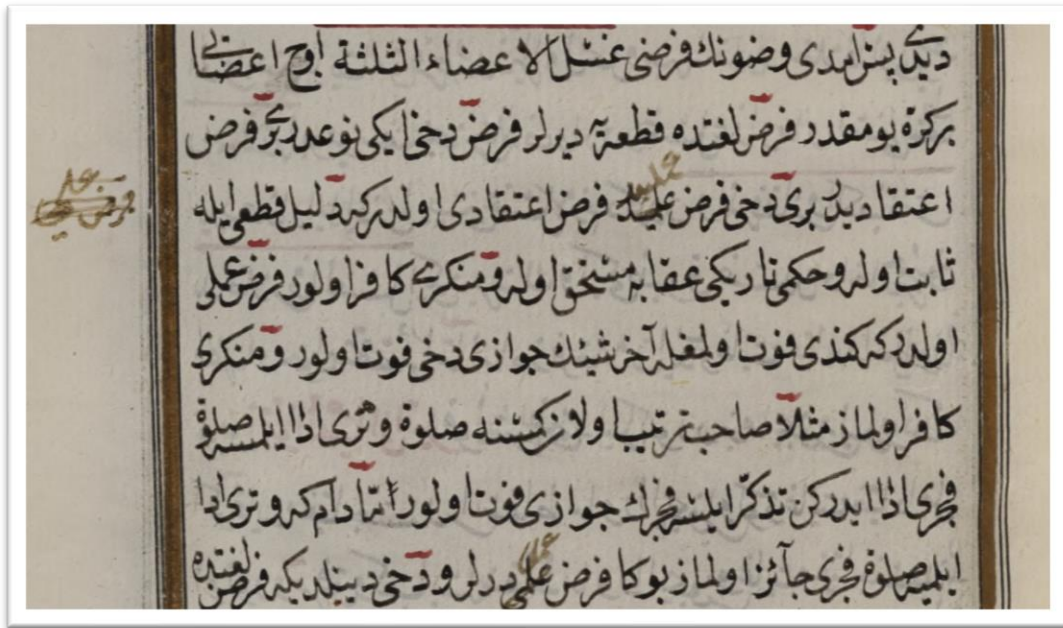 ديدى پس ايمدى وضونك فرضى غسل الاعضاء الثلثة اوچ اعضايى
بركره يومقدر فرض لغتده قطعه ديرلر فرض دخى ايكى نوعدر برى فرض
اعتقاديدر برى دخى فرض فرض اعتقادى اولدركه دليل قطعى ايله
ثابت اوله وحكمى تاريكى عقابه مستحق اوله ومنكرى كافر اولور فرض عملى
اولدركه كندى فوت اولمغله آخر شيئك جوازى دخى فوت اولور ومنكرى
كافر اولماز مثلا صاحب ترتيب اولان كسنه صلوة وترى ادا ايلمسه صلوة
فجرى ادا ايدركن تذكر ايلسه فجرك جوازى فوت اولور امّا دام كه وترى ادا
ايلميه صلوة فجرى جائز اولماز بوكا فرض عملى ديرلر ودخى دينلديكه فرض لغتده
فرض عملى